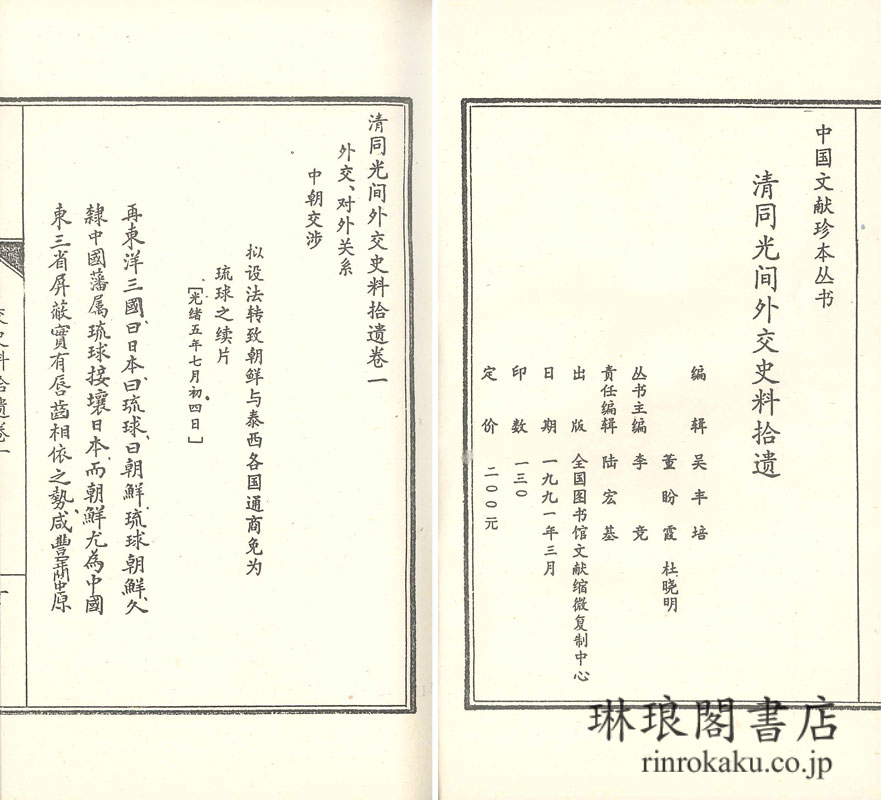 中国文献珍本丛书
清同光间外交史料拾遗
编辑 吴丰培
董盼霞 杜晓明
丛书主编 李竞
责任编辑 陆宏基
出版 全国图书馆文献缩微复制中心
日期 一九九一年三月
印数 一三〇
定价 二〇〇元
清同光间外交史料拾遗卷一
外交、对外关系
中朝交涉
拟设法转致朝鲜与泰西各国通商免为
琉球之续片
［光绪五年七月初四日］
再東洋三國曰日本曰琉球曰朝鮮琉球朝鮮久
隸中國藩属琉球接壤日本而朝鮮尤為中國
東三省屏蔽實有唇齒相依之勢咸豐年間中原
交史料拾遺卷一
琳琅閣書店
rinrokaku.co.jp